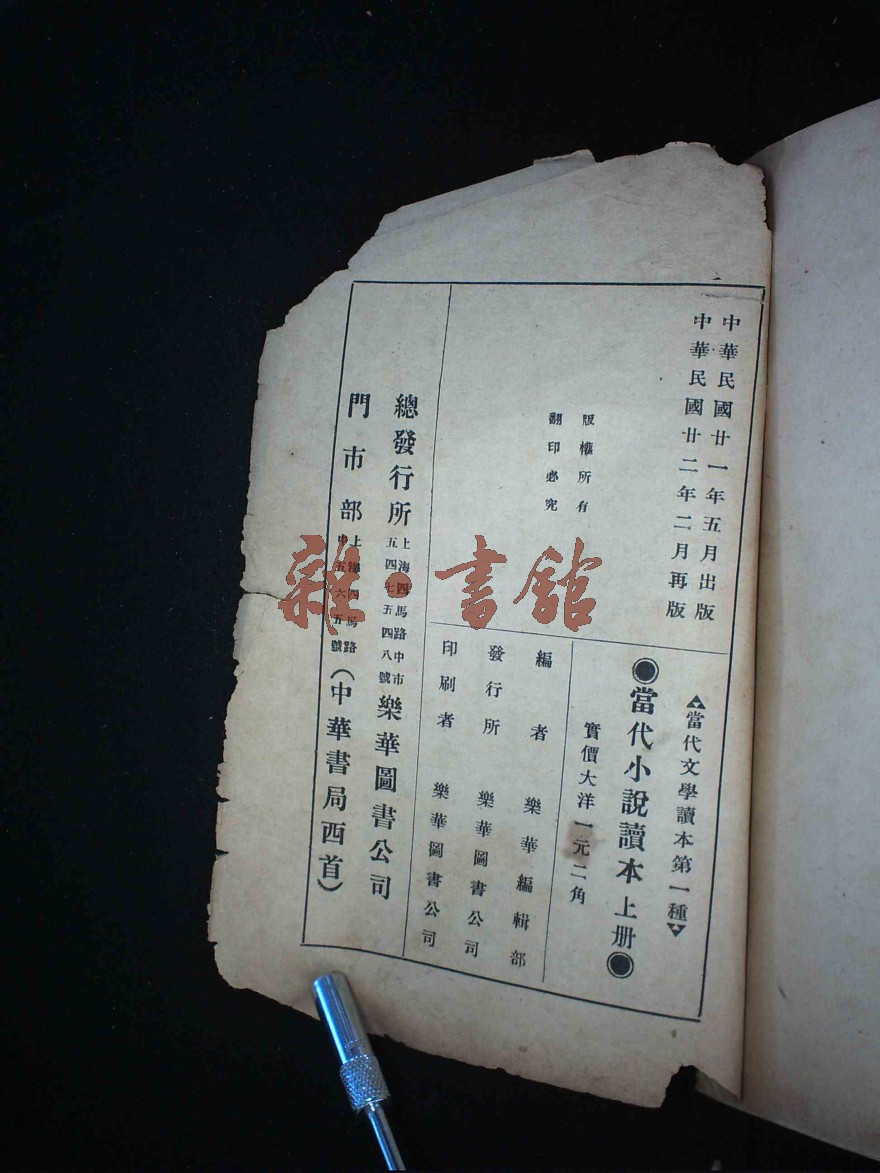 中華民國廿一年五月出版
中華民國廿二年二月再版
版權所有
翻印必究
當代文學讀本第一種
當代小說讀本 上册
實價大洋一元二角
編者 樂華編輯部
發行所 樂華圖書公司
印刷者 樂華圖書公司
總發行所 上海四馬路中市五四七五四八號 樂華圖書公司
門市部 上海四馬路中五六五號 (中華書局西首)
雜·書館